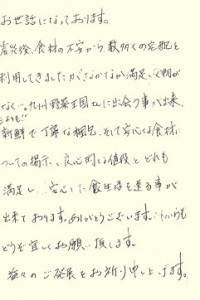 お世話になっております。
震災後、食材の不安から、数多くの宅配を
利用してきましたがなかなか満足いく物が
なく…。九州野菜王国さんに出会う事が出来、
とても!!
新鮮で丁寧な梱包、そして安心な食材
ついての掲示、良心的な値段とどれも
満足し、安心した飲生活を送る事が
出来ております。ありがとうございます。
どうぞ宜しくお願い致します。
益々のご発展をお祈り申し上げます。